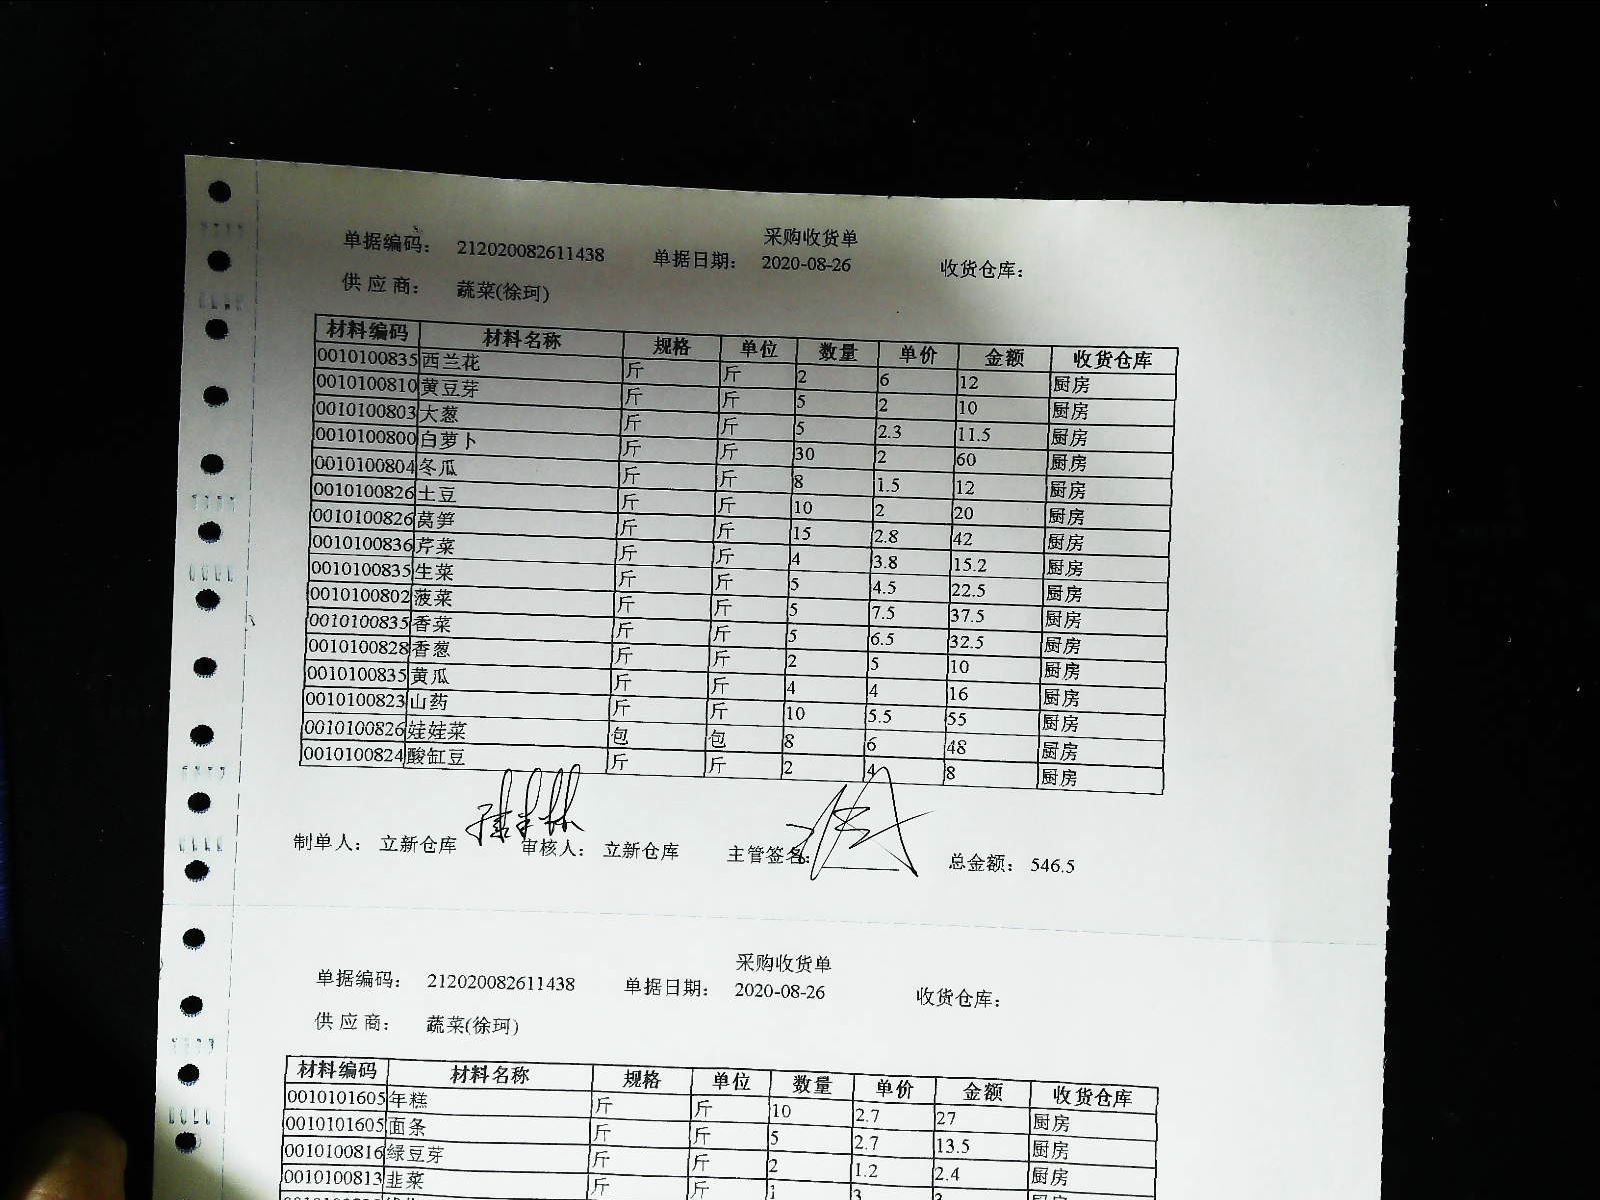 采购收货单
单据编码: 212020082611438 单据日期: 2020-08-26 收货仓库:
供应商: 蔬菜(徐珂)
材料编码 材料名称 规格 单位 数量 单价 金额 收货仓库
0010100835 西兰花 斤 斤 2 6 12 厨房
0010100810 黄豆芽 斤 斤 5 2 10 厨房
0010100803 大葱 斤 斤 5 2.3 11.5 厨房
0010100800 白萝卜 斤 斤 30 2 60 厨房
0010100804 冬瓜 斤 斤 8 1.5 12 厨房
0010100826 土豆 斤 斤 10 2 20 厨房
0010100826 莴笋 斤 斤 15 2.8 42 厨房
0010100836 芹菜 斤 斤 4 3.8 15.2 厨房
0010100835 生菜 斤 斤 5 4.5 22.5 厨房
0010100802 菠菜 斤 斤 5 7.5 37.5 厨房
0010100835 香菜 斤 斤 5 6.5 32.5 厨房
0010100828 香葱 斤 斤 2 5 10 厨房
0010100835 黄瓜 斤 斤 4 4 16 厨房
0010100823 山药 斤 斤 10 5.5 55 厨房
0010100826 娃娃菜 包 包 8 6 48 厨房
0010100824 酸缸豆 斤 斤 2 4 8 厨房
制单人: 立新仓库 审核人: 立新仓库 主管签名: 总金额: 546.5
采购收货单
单据编码: 212020082611438 单据日期: 2020-08-26 收货仓库:
供应商: 蔬菜(徐珂)
材料编码 材料名称 规格 单位 数量 单价 金额 收货仓库
0010101605 年糕 斤 斤 10 2.7 27 厨房
0010101605 面条 斤 斤 5 2.7 13.5 厨房
0010100816 绿豆芽 斤 斤 2 1.2 2.4 厨房
0010100813 韭菜 斤 斤 1 3 3 厨房